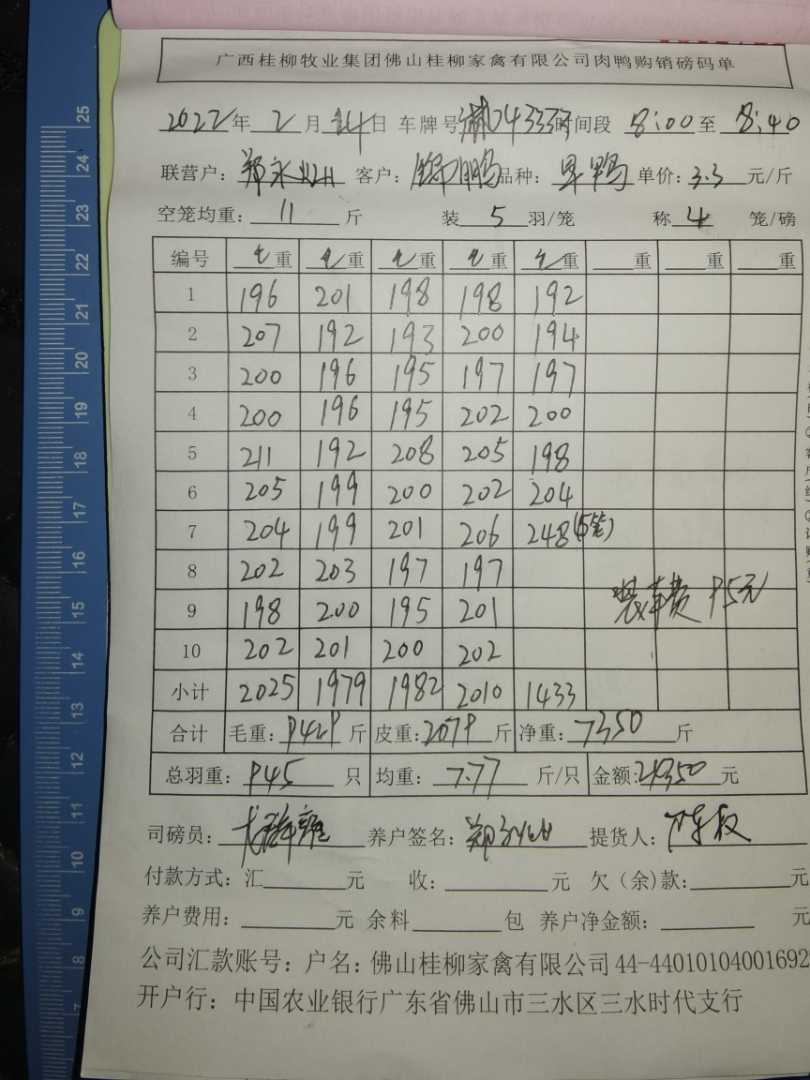 广西桂柳牧业集团佛山桂柳家禽有限公司肉鸭购销磅码单
2022年 2 月 24 日 车牌号 04333 时间段 8:00 至 8:40
联营户: 郑永 客户: 鹏 品种: 旱鸭 单价: 3.3 元/斤
空笼均重: 11 斤 装 5 羽/笼 称 4 笼/磅
编号 毛重 毛重 毛重 毛重 毛重 重 重 重
1 196 201 198 198 192
2 207 192 193 200 194
3 200 196 195 197 197
4 200 196 195 202 200
5 211 192 208 205 198
6 205 199 200 202 204
7 204 199 201 206 248(5笼)
8 202 203 197 197
9 198 200 195 201 装车费 95元
10 202 201 200 202
小计 2025 1979 1982 2010 1433
合计 毛重: 9429 斤 皮重: 2079 斤 净重: 7350 斤
总羽重: 945 只 均重: 7.77 斤/只 金额: 24350 元
司磅员: 养户签名: 提货人:
付款方式: 汇 元 收: 元 欠(余)款: 元
养户费用: 元 余料 包 养户净金额: 元
公司汇款账号: 户名: 佛山桂柳家禽有限公司 44-44010104001692
开户行: 中国农业银行广东省佛山市三水区三水时代支行
25
24
23
22
21
20
19
18
17
16
15
14
13
12
11
10
9
8
7